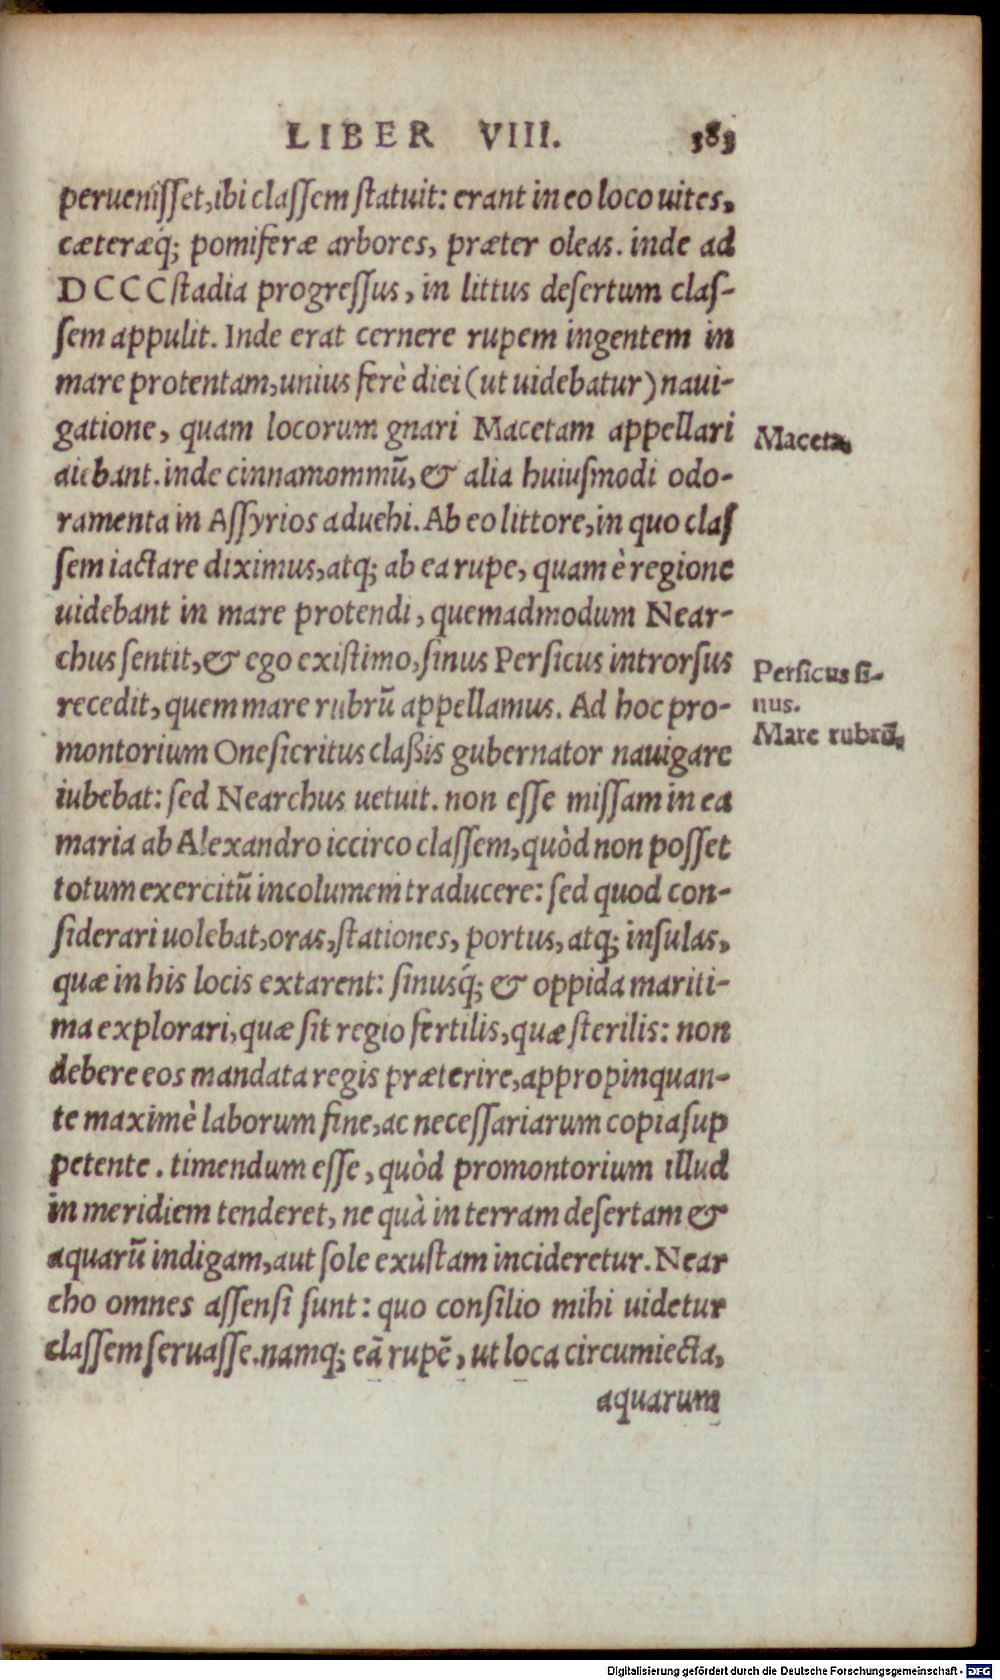 LIBER VIII. 383
peruenisset, ibi classem statuit: erant in eo loco uites,
cæteræq́; pomiferæ arbores, præter oleas. inde ad
DCCC stadia progressus, in littus desertum clas-
sem appulit. Inde erat cernere rupem ingentem in
mare protentam, unius ferè diei (ut uidebatur) naui-
gatione, quam locorum gnari Macetam appellari
aiebant. inde cinnamommū, & alia huiusmodi odo-
ramenta in Assyrios aduehi. Ab eo littore, in quo clas
sem iactare diximus, atq; ab ea rupe, quam è regione
uidebant in mare protendi, quemadmodum Near-
chus sentit, & ego existimo, sinus Persicus introrsus
recedit, quem mare rubrū appellamus. Ad hoc pro-
montorium Onesicritus claßis gubernator nauigare
iubebat: sed Nearchus uetuit. non esse missam in ea
maria ab Alexandro iccirco classem, quòd non posset
totum exercitū incolumem traducere: sed quod con-
siderari uolebat, oras, stationes, portus, atq; insulas,
quæ in his locis extarent: sinusq́; & oppida mariti-
ma explorari, quæ sit regio fertilis, quæ sterilis: non
debere eos mandata regis præterire, appropinquan-
te maximè laborum fine, ac necessariarum copia sup
petente. timendum esse, quòd promontorium illud
in meridiem tenderet, ne quà in terram desertam &
aquarū indigam, aut sole exustam incideretur. Near
cho omnes assensi sunt: quo consilio mihi uidetur
classem seruasse. namq; eā rupē, ut loca circumiecta,
aquarum
Maceta.
Persicus si-
nus.
Mare rubrū.
Digitalisierung gefördert durch die Deutsche Forschungsgemeinschaft - DFG